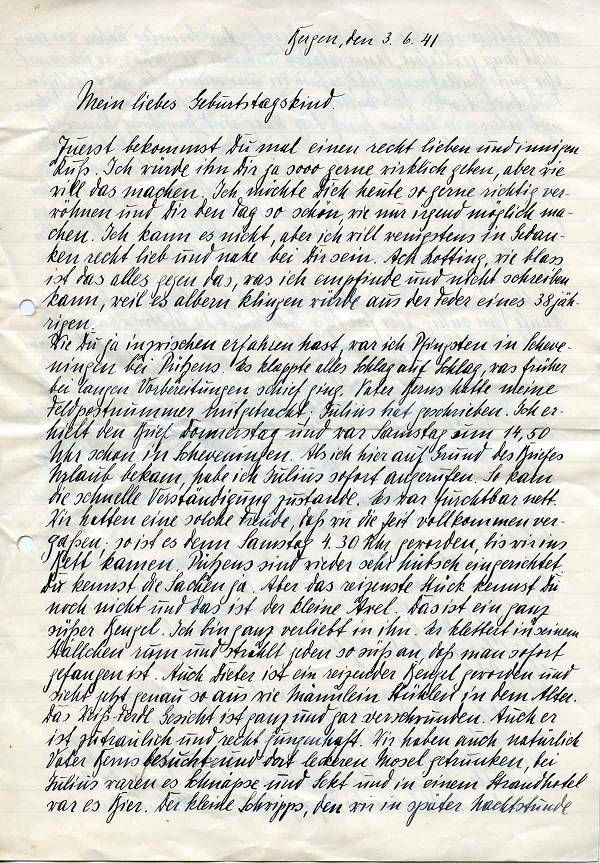 Bergen, den 3. 6. 41
Mein liebes Geburtstagskind.
Zuerst bekommst Du mal einen recht lieben und innigen
Kuß. Ich würde ihn Dir ja sooo gerne wirklich geben, aber wie
will das machen. Ich möchte Dich heute so gerne richtig ver-
wöhnen und Dir den Tag so schön, wie nur irgend möglich ma-
chen. Ich kann es nicht, aber ich will wenigstens in Gedan-
ken recht lieb und nahe bei Dir sein. Ach wie blass
ist das alles gegen das, was ich empfinde und nicht schreiben
kann, weil es albern klingen würde aus der Feder eines 38jäh-
rigen.
Wie Du ja inzwischen erfahren hast, war ich Pfingsten in Scheve-
ningen bei Es klappte alles Schlag auf Schlag, was früher
bei langen Vorbereitungen schief ging. Vater hatte meine
Feldpostnummer mitgebracht; Julius hat geschrieben. Ich er-
hielt den Brief Donnerstag und war Samstag um 14,50
Uhr schon in Scheveningen. Als ich hier auf Grund des Briefes
Urlaub bekam, habe ich Julius sofort angerufen. So kam
die schnelle Verständigung zustande. Es war furchtbar nett.
Wir hatten eine solche Freude, daß wir die Zeit vollkommen ver-
gaßen; so ist es denn Samstag 4.30 Uhr geworden, bis wir ins
Bett kamen. sind wieder sehr hübsch eingerichtet.
Du kennst die Sachen ja. Aber das reizenste Stück kennst Du
noch nicht und das ist der kleine Axel. Das ist ein ganz
süßer Bengel. Ich bin ganz verliebt in ihn. Er klettert in seinem
Ställchen rum und strahlt jeden so süß an, daß man sofort
gefangen ist. Auch Dieter ist ein reizender Bengel geworden und
sieht jetzt genau so aus wie in dem Alter.
Das Gesicht ist ganz und gar verschwunden. Auch er
ist zutraulich und recht jungenhaft. Wir haben auch natürlich
Vater besucht und dort leckeren Mosel getrunken, bei
Julius waren es Schnäpse und Sekt und in einem Strandhotel
war es Bier. Der kleine Schripps, den wir in später Nachtstunde